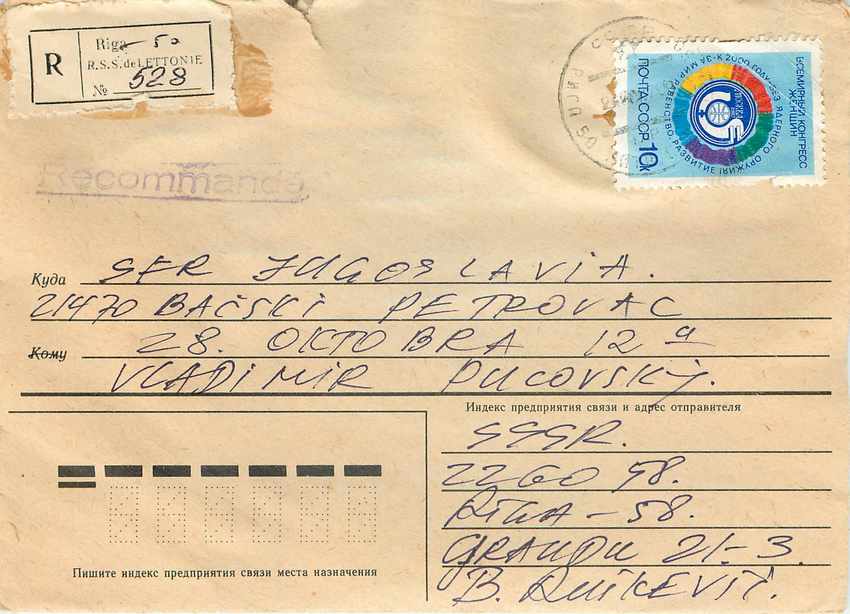 R
Riga 50
R.S.S. de LETTONIE
№ 528
Recommandé
ВСЕМИРНЫЙ КОНГРЕСС ЖЕНЩИН
К 2000 ГОДУ-БЕЗ ЯДЕРНОГО ОРУЖИЯ! ЗА МИР РАВЕНСТВО РАЗВИТИЕ
ПОЧТА СССР 10К
Куда SFR JUGOSLAVIA.
21470 BAČSKI PETROVAC
Кому 28. OKTOBRA 12 a
VLADIMIR PUCOVSKÝ.
Индекс предприятия связи и адрес отправителя
SSSR.
226058.
RIGA-58.
21-3.
Пишите индекс предприятия связи места назначения